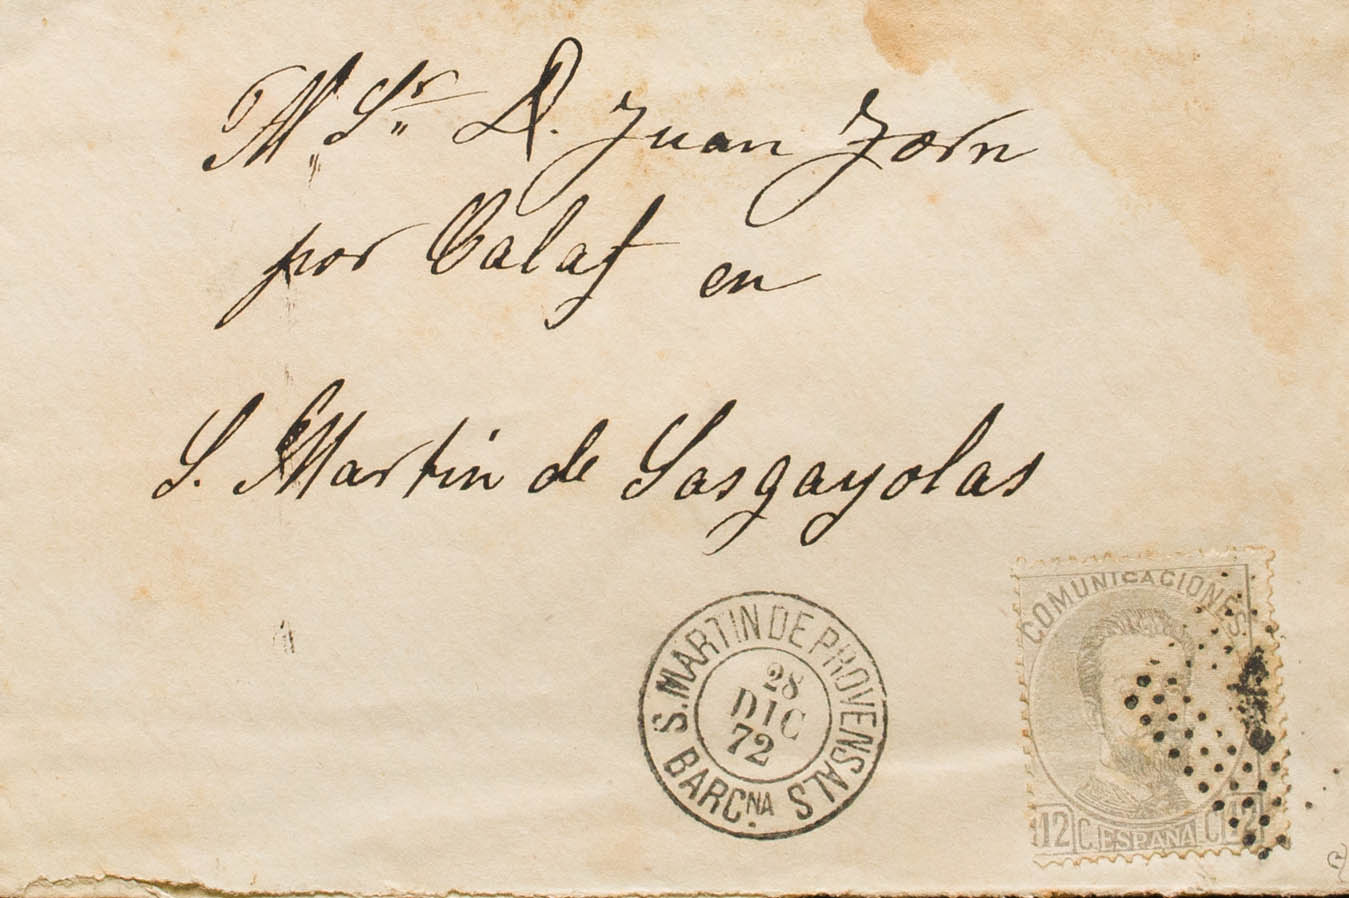 M. Sr. D. Juan Jorn
por Calaf en
S. Martin de Sasgayolas
S. MARTIN DE PROVENSALS
28
DIC
72
BARCNA.
COMUNICACIONES.
12 C. ESPAÑA C. 12